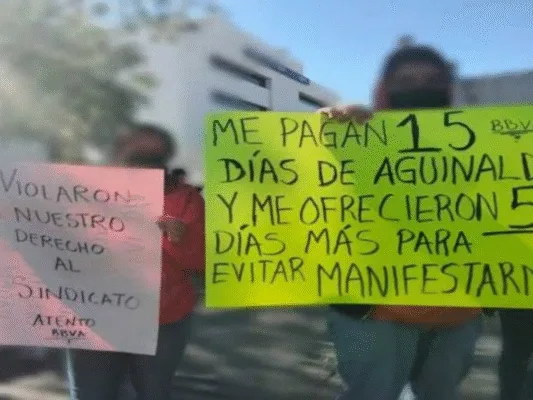 VIOLARON
NUESTRO
DERECHO
AL
SINDICATO
ATENTO
BBVA
ME PAGAN 15 BBVA
DÍAS DE AGUINALD
Y ME OFRECIERON 5
DÍAS MÁS PARA
EVITAR MANIFESTARM